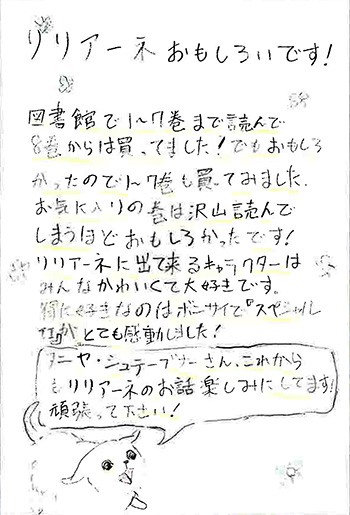 リリアーネ おもしろいです!
図書館で1~7巻まで読んで
8巻からは買ってました!でもおもしろ
かったので1~7巻も買ってみました.
お気に入りの巻は沢山読んで
しまうほどおもしろかったです!
リリアーネに出て来るキャラクターは
みんなかわいくて大好きです。
特に好きなのはボンサイで『スペシャル
とても感動しました!
タニヤ・シュテーブナーさん、これから
もリリアーネのお話楽しみにしてます!
頑張って下さい!